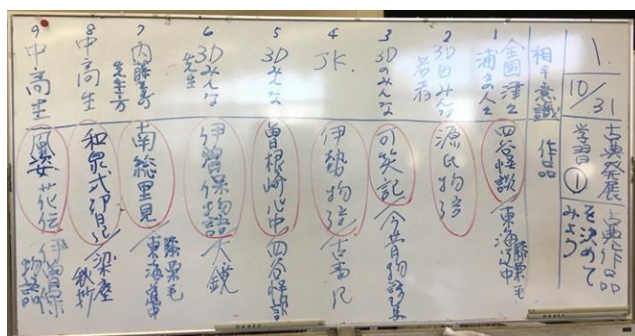 1.
10/31
古典発展学習①
古典作品を決めてみよう
相手意識
作品
1
全国津々浦々の人々
四谷怪談
東海道中膝栗毛
2
3Dのみんな
若者
源氏物語
3
3Dのみんな
可笑記
今昔物語集
4
JK.
伊勢物語
古事記
5
3Dみんな
曽根崎心中
四谷怪談
6
3Dみんな
先生
伊曽保物語
大鏡
7
先生方
南総里見
東海道中膝栗毛
8
中高生
和泉式部日記
梁塵秘抄
9
中高生
風姿花伝
伊曽保物語